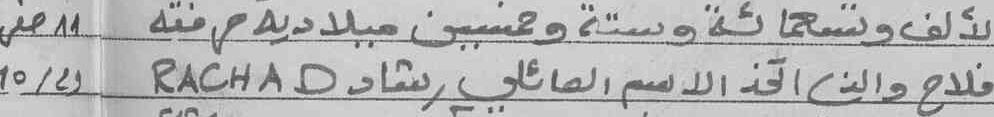 لألف وتسعمائة وستة وخمسين ميلادية حرفته
فلاح والذي اتخذ الاسم العائلي رشاد RACHAD